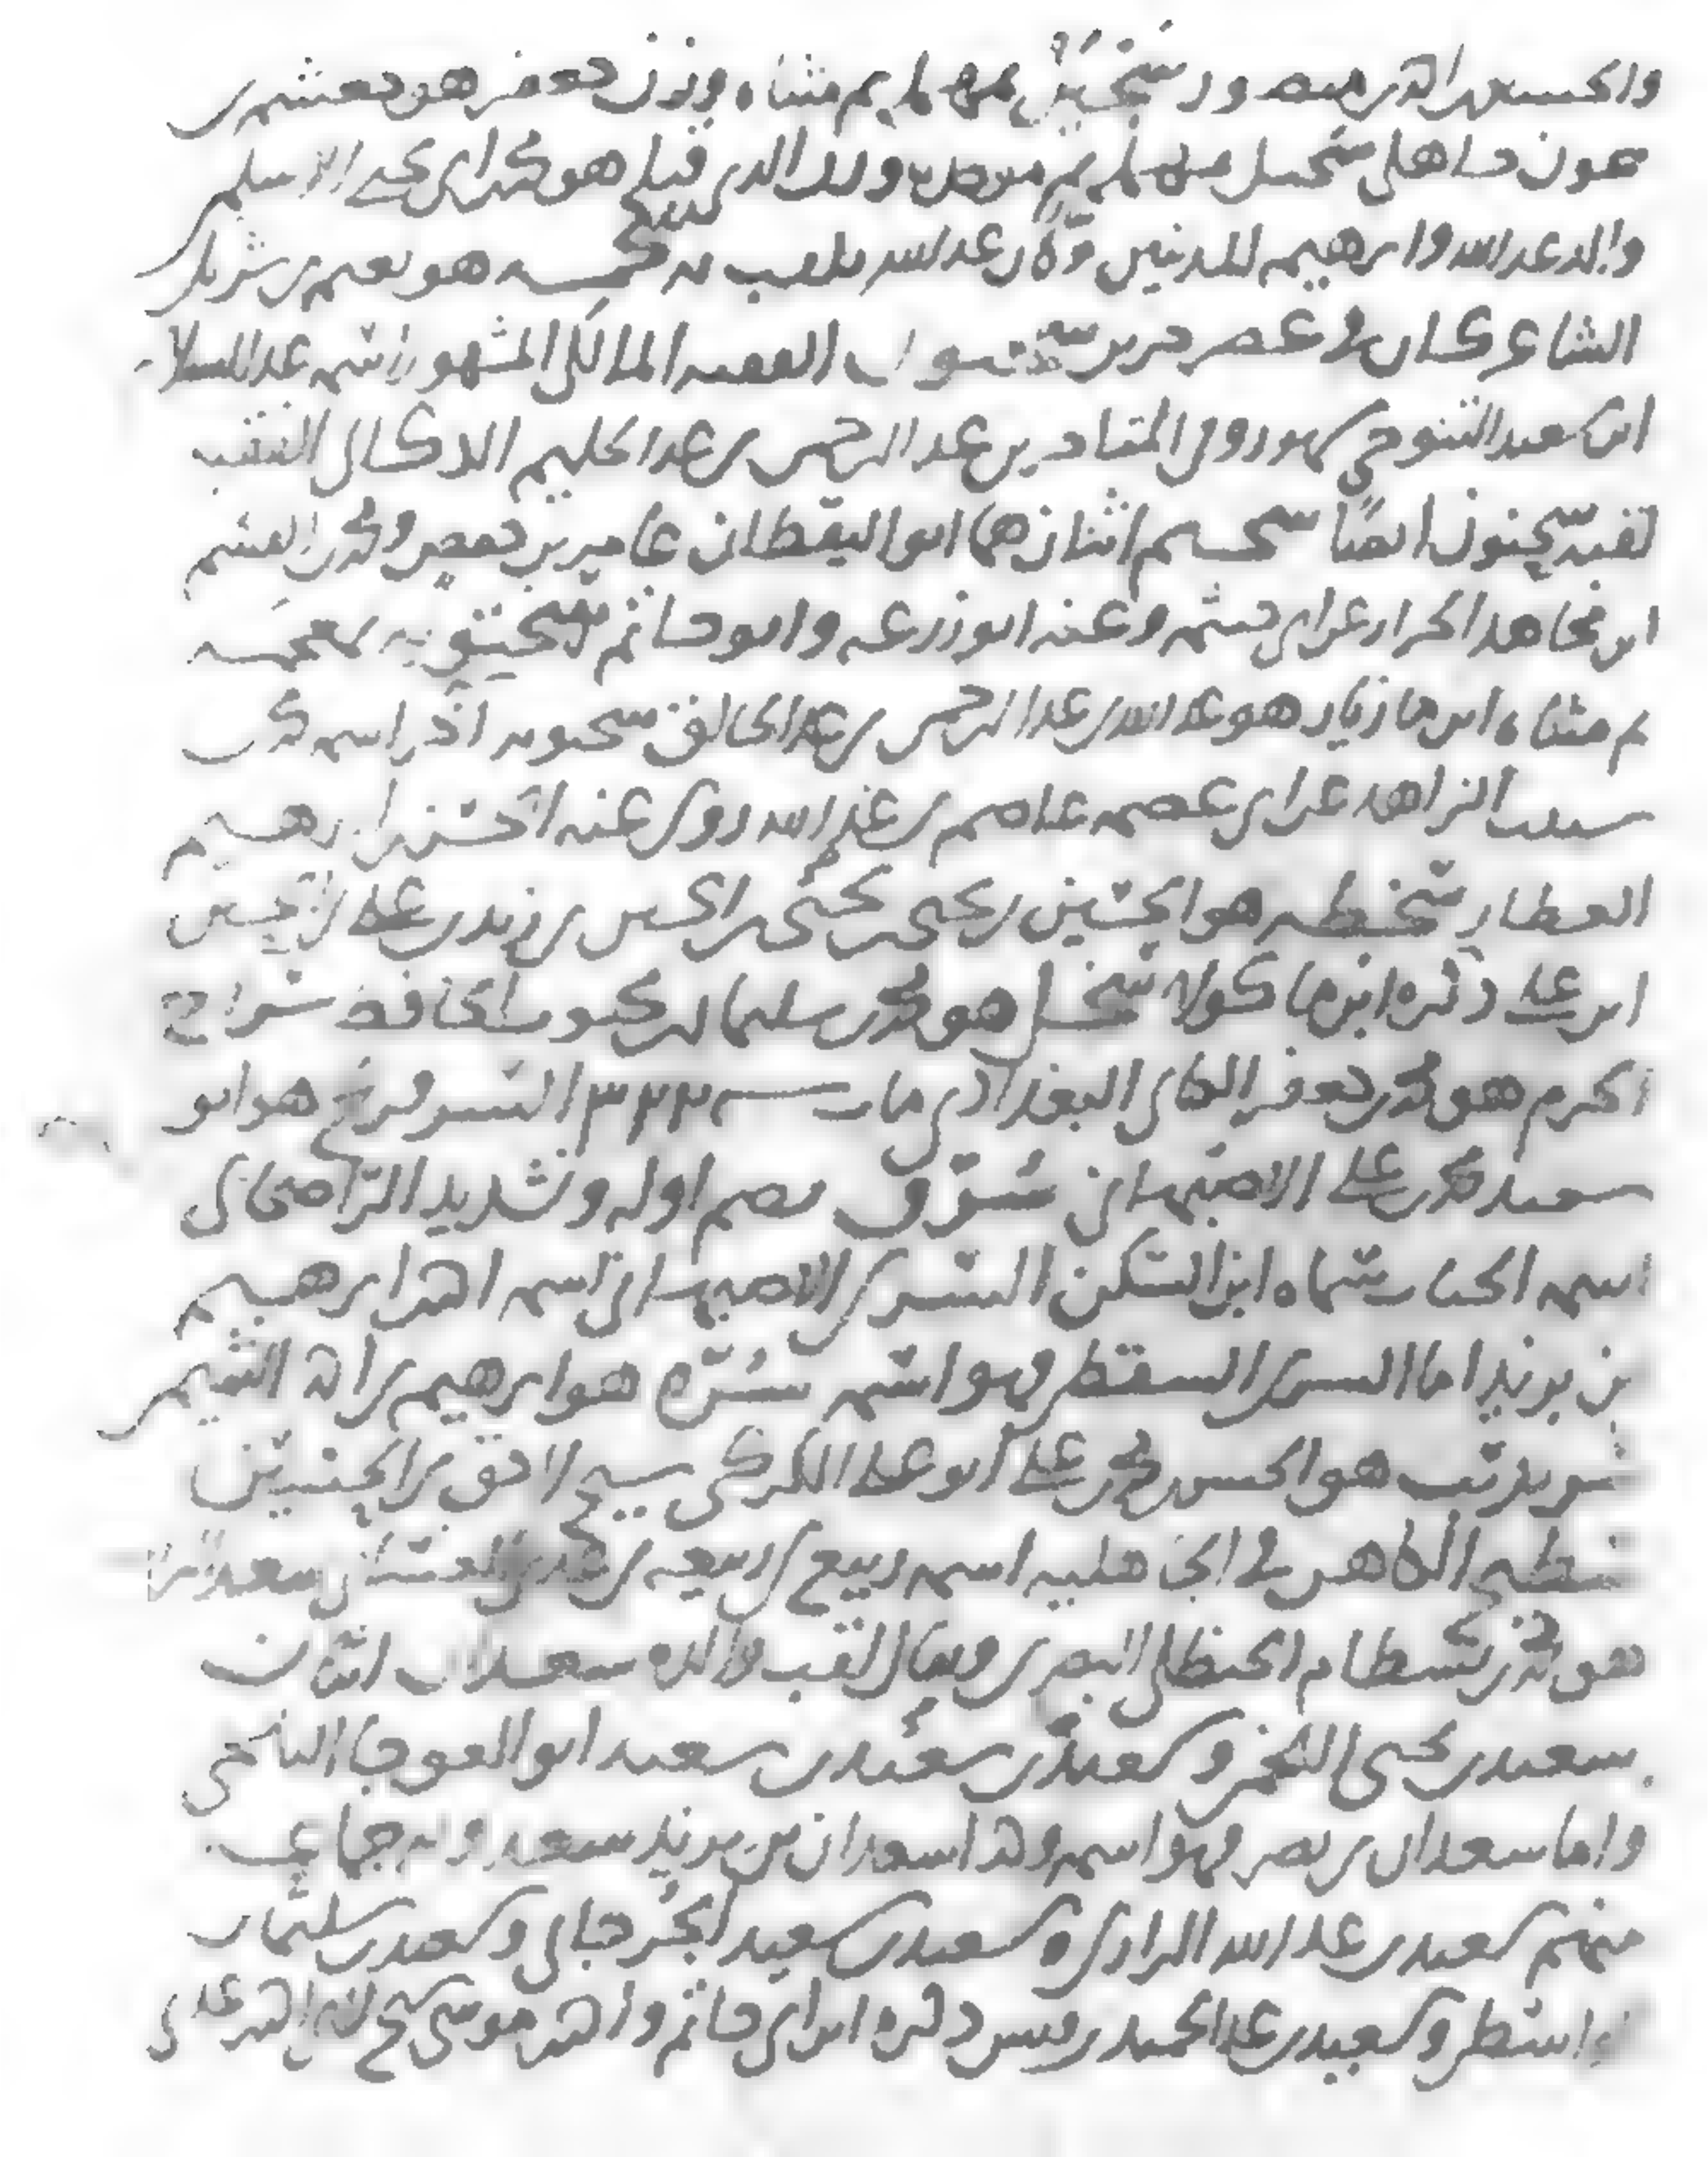 والحسين بن احمد بن منصور سحيتر بمهملة ثم مثناه وزن جعفر هو جعشمة بن
عون جاهلي سحبل بمهملة ثم موحده ولد الذي قبله هو محمد بن ابي يحيى الاسلمي
والد عبد الله وابرهيم المدنيين وكان عبد الله يلقب به سحيم هو نعيم بن شريك
الشاعر كان في عصر جرير سحنون الفقيه المالكي المشهور اسمه عبد السلام
ابن سعيد التنوخي مشهور وفي المتاخرين عبد الرحمن بن عبد الحليم الدكالي الفقيه
لقبه سحنون ايضا سحيم اثنان هما ابو اليقظان عامر بن حفص ومحمد بن القسم
ابن مجاهد الحراني وعنه ابو زرعه وابو حاتم سحتويه بمعجمه
ثم مثناه ابن مازيار هو عبد الله بن عبد الرحمن بن عبد الخالق سحنويه آخر اسمه محمد بن
الزاهد عن ابي عصمه عاصم بن عبد الله روى عنه الحسن بن ابرهيم
العطار سخطه هو الحسين بن يحيى بن يحيى بن الحسين بن زيد بن علي بن الحسين
ابن علي ذكره ابن ماكولا سخل هو محمد بن سليمان بن محبوب الحافظ سراج
الحرم هو محمد بن جعفر الكتاني البغدادي مات سنة ٣٢٢ السرفرتج هو ابو
سعيد محمد بن علي الاصبهاني سُرّق بضم اوله وتشديد الراء صحابي
اسمه الحباب سماه ابن السكن السري الاصبهاني اسمه احمد بن ابرهيم
بن يزيد اما السري السقطي فهو اسمه سُرّه هو ابرهيم بن احمد
هو الحسن بن محمد بن علي ابو علي الكركي شيخ لاحق بن الحسين
سطيح الكاهن في الجاهلية اسمه ربيع بن ربيعه الغساني
هو محمد بن بسطام الحنظلي البصري ويقال لقب والده سعدان اثنان
سعيد بن يحيى اللخمي وسعيد بن سعيد ابو العوجا البلخي
واما سعدان بن نصر فهو اسمه وكذا سعدان بن يزيد سعدويه جماعة
منهم سعيد بن عبد الله الرازي وسعيد بن سعيد الجرجاني وسعيد بن سليمان
الواسطي وسعيد بن عبد الحميد بن قيس ذكره ابن ابي حاتم واحمد بن موسى شيخ لابي احمد بن عدي